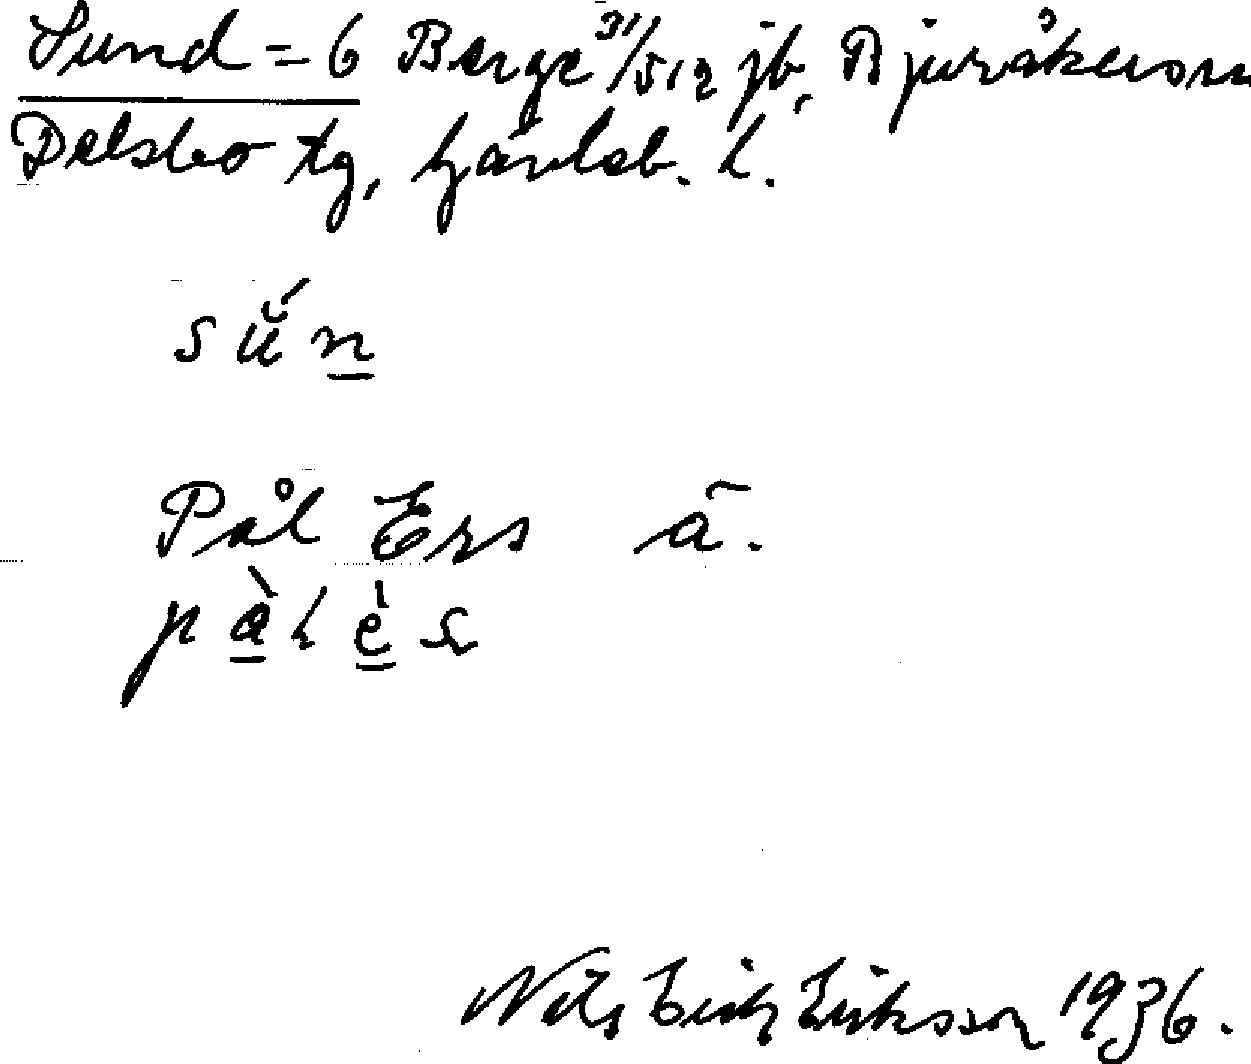 Sund = 6 Berge 31/512 jb, Bjuråkers sn
Delsbo tg, Gävleb. l.
sŭ́n
Pål Ers ä.
pàlès
Nils Erik Eriksson 1936.